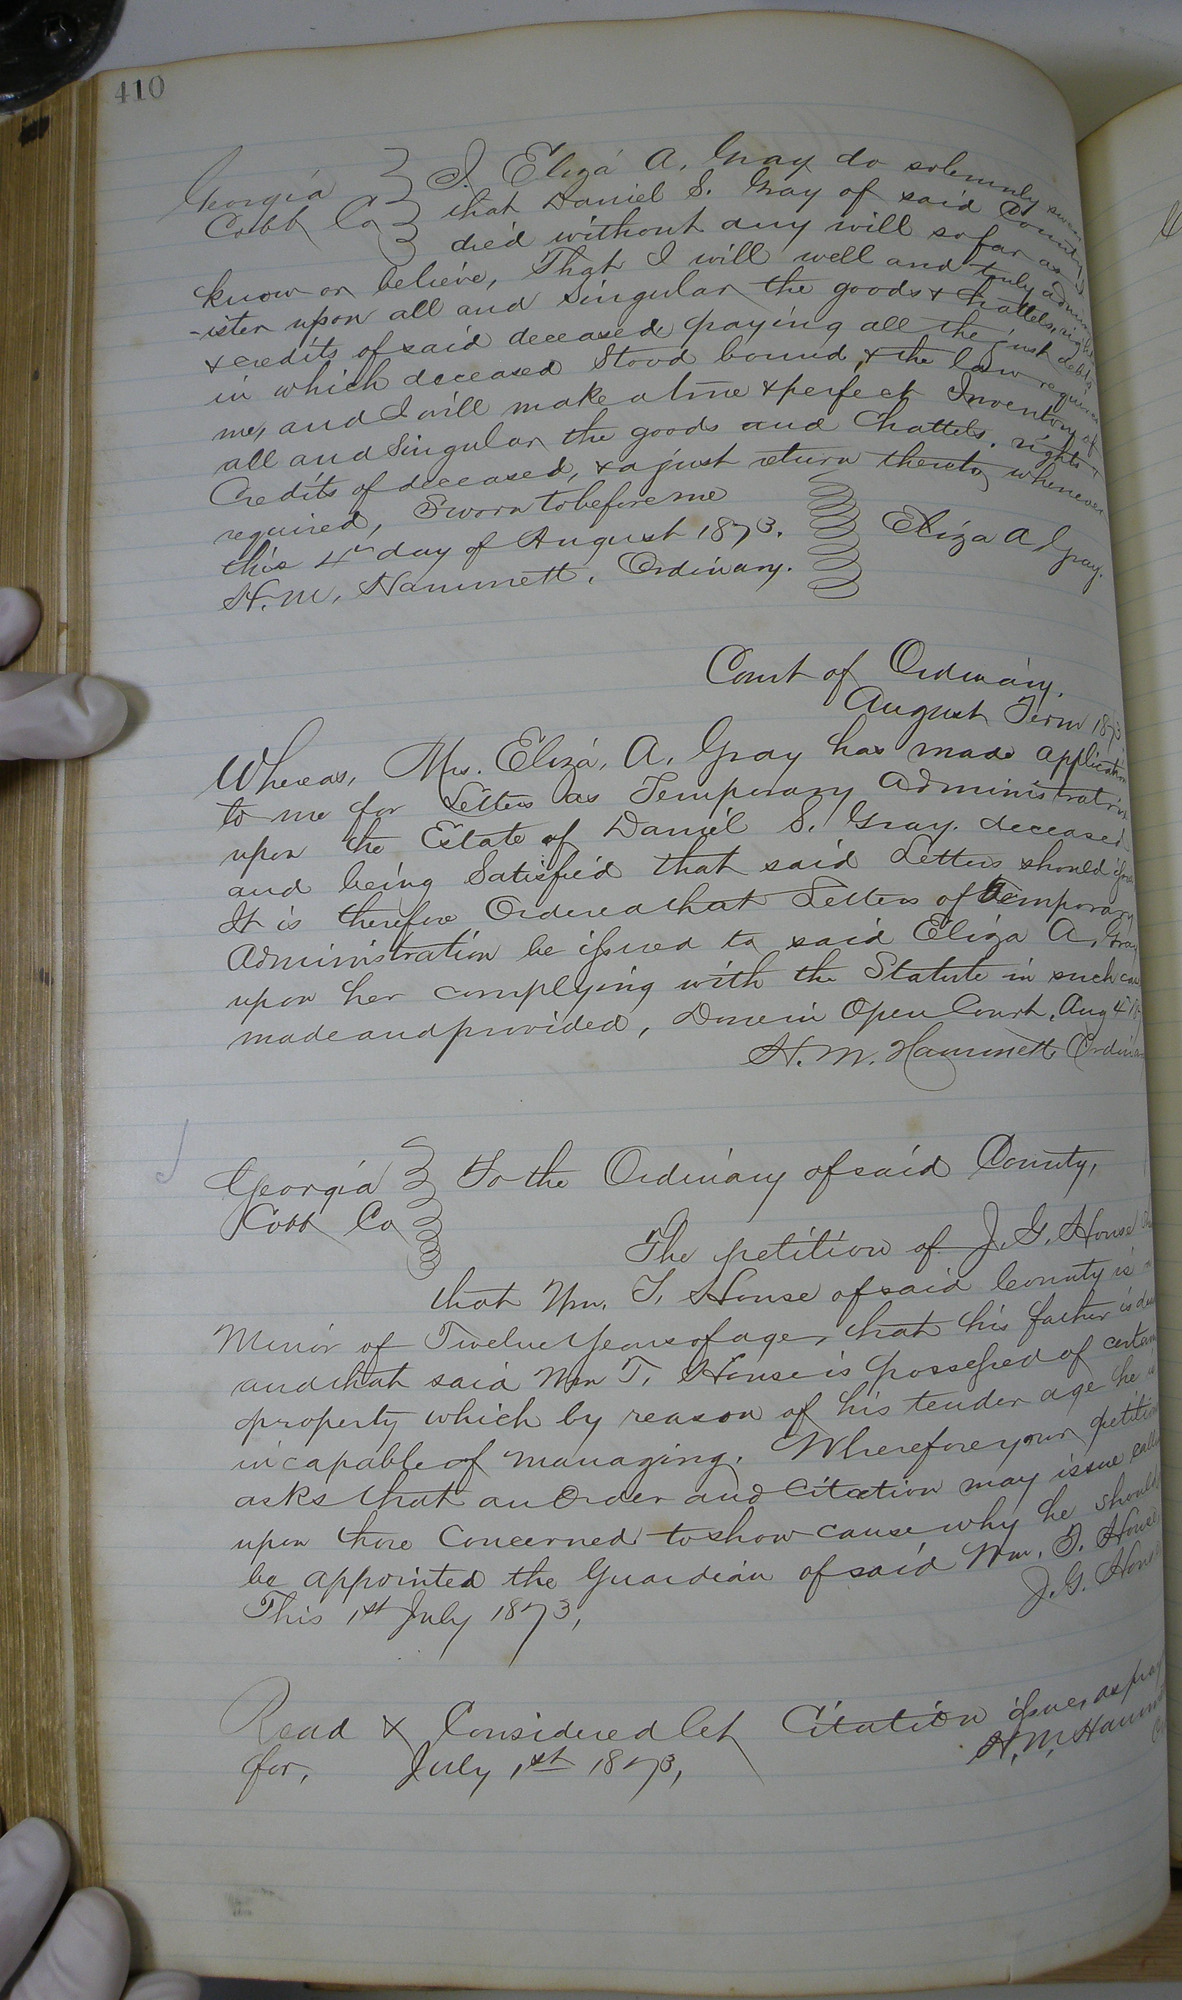 410
Georgia I, Eliza A. Gray do solemnly swear
Cobb Co that Daniel S. Gray of said County
died without any will so far as I
know or believe, That I will well and truly admin
-ister upon all and Singular the goods & chattels, rights
& credits of said deceased paying all the just debts
in which deceased Stood bound & the law requires
me, and I will make a true & perfect Inventory of
all and Singular the goods and Chattels, rights &
Credits of deceased, & a just return thereto whenever
required, Sworn to before me
this 4th day of August 1873. Eliza A Gray.
H. M. Hammett, Ordinary.
Court of Ordinary.
August Term 1873
Whereas, Mrs. Eliza, A, Gray has made application
to me for Letters as Temporary Administratrix
upon the Estate of Daniel S. Gray. deceased
and being Satisfied that said Letters should issue
It is therefore Ordered that Letters of Temporary
Administration be issued to said Eliza A, Gray
upon her complying with the Statute in such case
made and provided, Done in Open Court, Aug 4th
H. M. Hammett Ordinary
Georgia To the Ordinary of said County,
Cobb Co
The petition of J. G. House
that Wm. T. House of said County is a
Minor of Twelve Years of age, that his father is dead
and that said Wm T. House is possessed of certain
property which by reason of his tender age he is
incapable of managing. Wherefore your petitioner
asks that an Order and Citation may issue calling
upon those Concerned to show cause why he should
be appointed the Guardian of said Wm. T. House,
This 1st July 1873, J. G. House
Read & Considered let Citation issue, as pray
for, July 1st 1873, H. M. Hammett